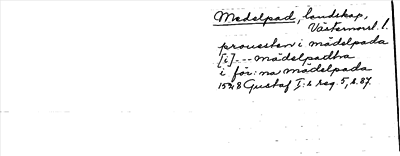 Medelpad, landskap,
Västernorrl. l.
prouesten i mädelpada
[i] --- mädelpadha
i för:na mädelpada
1548 Gustaf I:s reg. 5, s. 87.